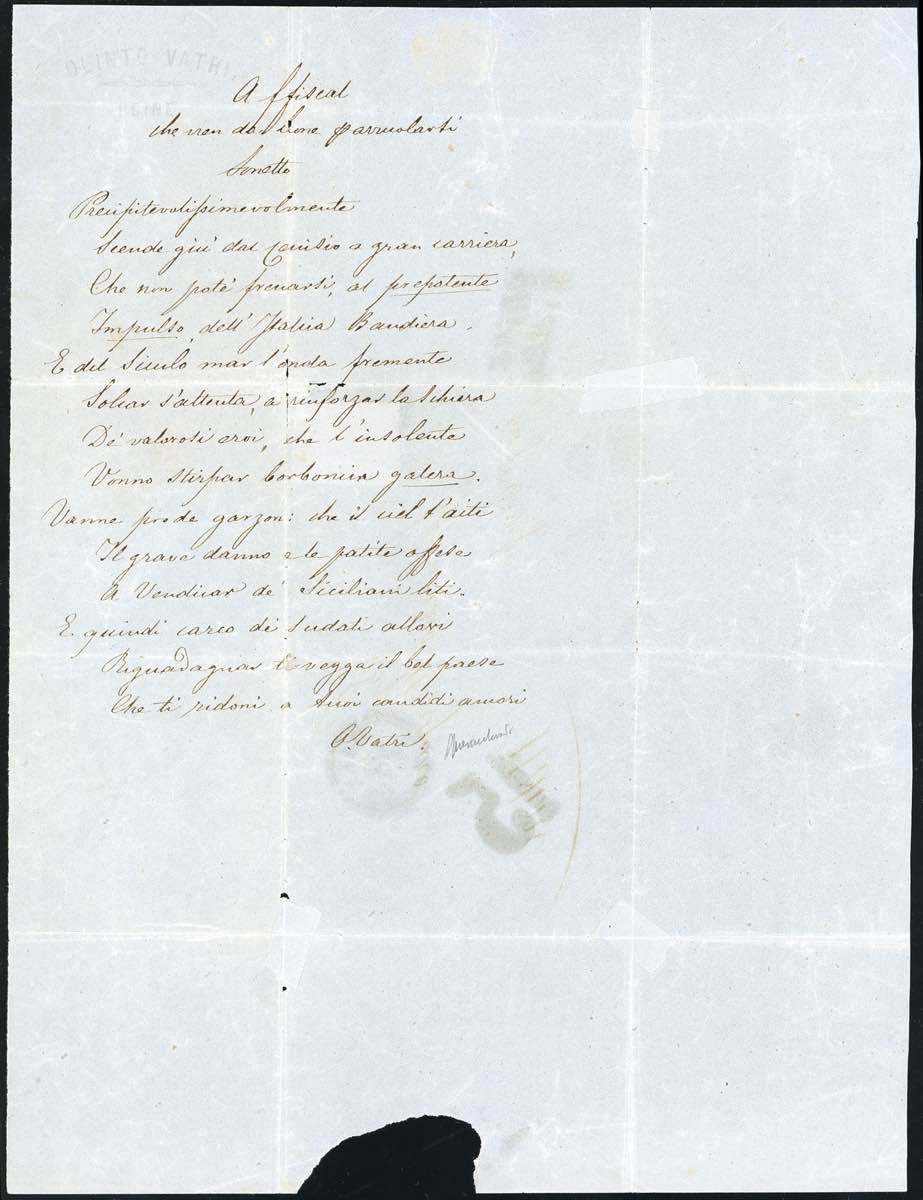 OLINTO VATRI
UDINE
A ffiscal
che vien da
Sonetto
Precipitevolissimevolmente
Scende giù dal Cenisio a gran carriera,
Che non poté frenarsi, al prepotente
Impulso, dell' Italica Bandiera.
E del Siculo mar l'onda fremente
Solcar s'attenta, a rinforzar la schiera
De' valorosi eroi, che l'insolente
Vonno stirpar borbonica galera.
Vanne prode garzon: che il ciel t'aiti
Il grave danno e le patite offese
A Vendicar de' Siciliani liti.
E quindi carco di sudati allori
Riguadagnar ti vegga il bel paese
Che ti ridoni a tuoi candidi amori
O. Vatri.